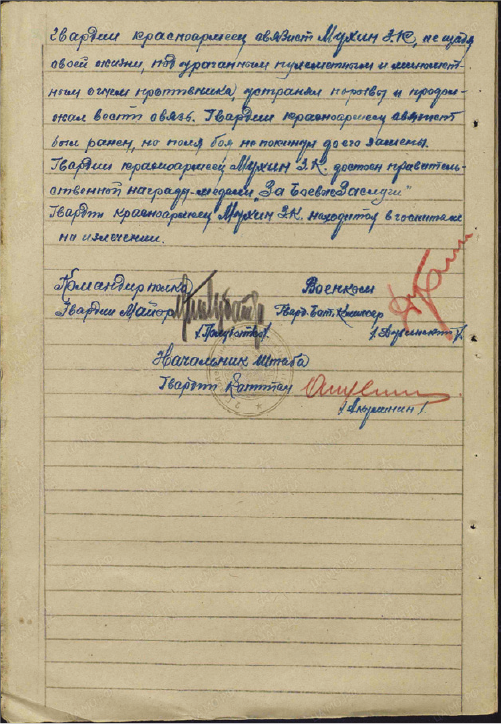 Гвардии красноармеец связист Мухин З.К, не щадя
своей жизни, под ураганным пулеметным и миномет-
ным огнем противника, устранял порывы и продол-
жал вести связь. Гвардии красноармеец связист
был ранен, но поля боя не покинул до его замены.
Гвардии красноармеец Мухин З.К. достоин правитель-
ственной награды-медали „За Боевые Заслуги"
Гвардии красноармеец Мухин З.К. находится в госпитале
на излечении.
Командир полка Военком
Гвардии Майор Гвард. Бат. Комиссар
Начальник Штаба
Гвардии Капитан
/Акулинин/